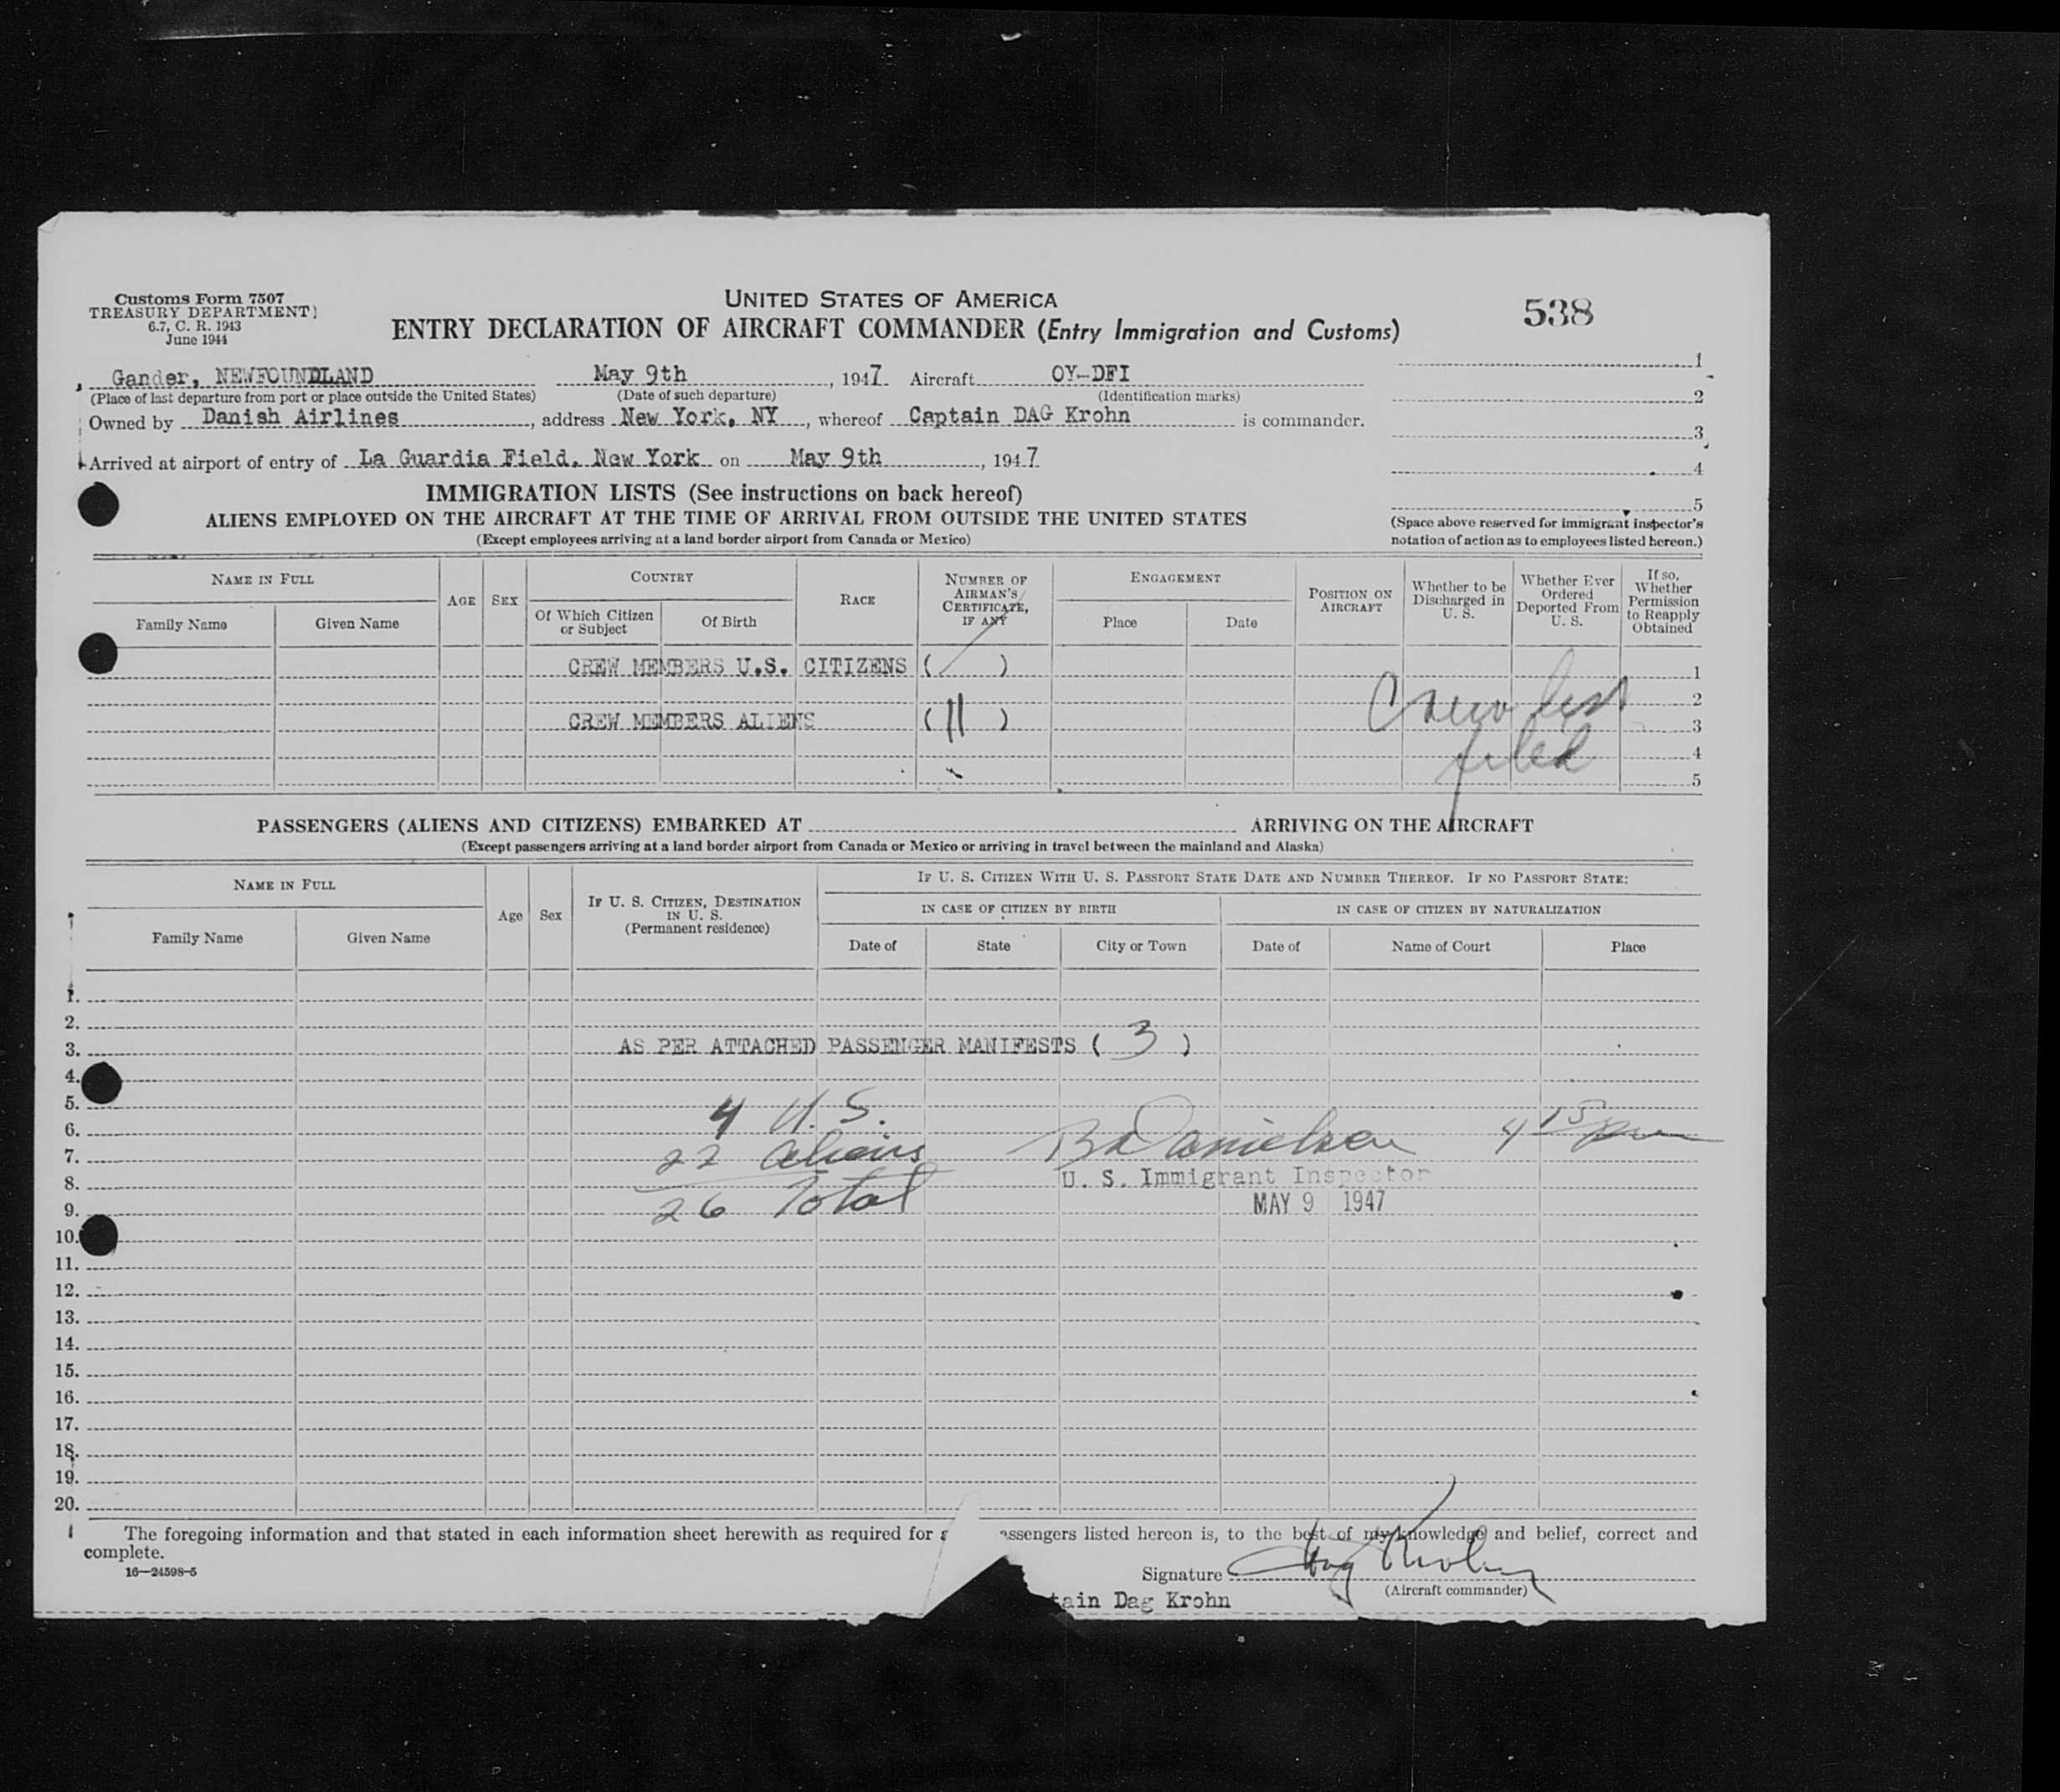 Customs Form 7507
TREASURY DEPARTMENT
6.7, C. R. 1943
June 1944
UNITED STATES OF AMERICA
ENTRY DECLARATION OF AIRCRAFT COMMANDER (Entry Immigration and Customs)
538
Gander, NEWFOUNDLAND May 9th, 1947 Aircraft OY-DFI
(Place of last departure from port or place outside the United States) (Date of such departure) (Identification marks)
Owned by Danish Airlines, address New York, NY, whereof Captain DAG Krohn is commander.
Arrived at airport of entry of La Guardia Field, New York on May 9th, 1947
1
2
3
4
5
(Space above reserved for immigrant inspector's
notation of action as to employees listed hereon.)
IMMIGRATION LISTS (See instructions on back hereof)
ALIENS EMPLOYED ON THE AIRCRAFT AT THE TIME OF ARRIVAL FROM OUTSIDE THE UNITED STATES
(Except employees arriving at a land border airport from Canada or Mexico)
NAME IN FULL
Family Name
Given Name
AGE
SEX
COUNTRY
Of Which Citizen
or Subject
Of Birth
RACE
NUMBER OF
AIRMAN'S
CERTIFICATE,
IF ANY
ENGAGEMENT
Place
Date
POSITION ON
AIRCRAFT
Whether to be
Discharged in
U. S.
Whether Ever
Ordered
Deported From
U. S.
If so,
Whether
Permission
to Reapply
Obtained
CREW MEMBERS U.S. CITIZENS ( / ) 1
2
CREW MEMBERS ALIENS ( 11 ) 3
4
5
Crew list
filed
PASSENGERS (ALIENS AND CITIZENS) EMBARKED AT ARRIVING ON THE AIRCRAFT
(Except passengers arriving at a land border airport from Canada or Mexico or arriving in travel between the mainland and Alaska)
NAME IN FULL
Family Name
Given Name
Age
Sex
IF U. S. CITIZEN, DESTINATION
IN U. S.
(Permanent residence)
IF U. S. CITIZEN WITH U. S. PASSPORT STATE DATE AND NUMBER THEREOF. IF NO PASSPORT STATE:
IN CASE OF CITIZEN BY BIRTH
Date of
State
City or Town
IN CASE OF CITIZEN BY NATURALIZATION
Date of
Name of Court
Place
1.
2.
3. AS PER ATTACHED PASSENGER MANIFESTS ( 3 )
4.
5. 4 U.S.
6.
7. 22 Aliens B Danielsen 4 15 pm
8. U. S. Immigrant Inspector
9. 26 Total MAY 9 1947
10.
11.
12.
13.
14.
15.
16.
17.
18.
19.
20.
The foregoing information and that stated in each information sheet herewith as required for assengers listed hereon is, to the best of my knowledge and belief, correct and
complete.
16—24598-5
Signature Dag Krohn
(Aircraft commander)
tain Dag Krohn